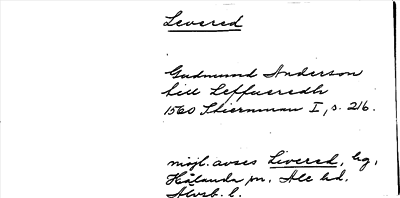 Levered
Gudmund Anderson
till Leffueredh
1560 Stiernman I, s. 216.
möjl. avses Livered, hg,
Hålanda sn. Ale hd.
Älvsb. l.